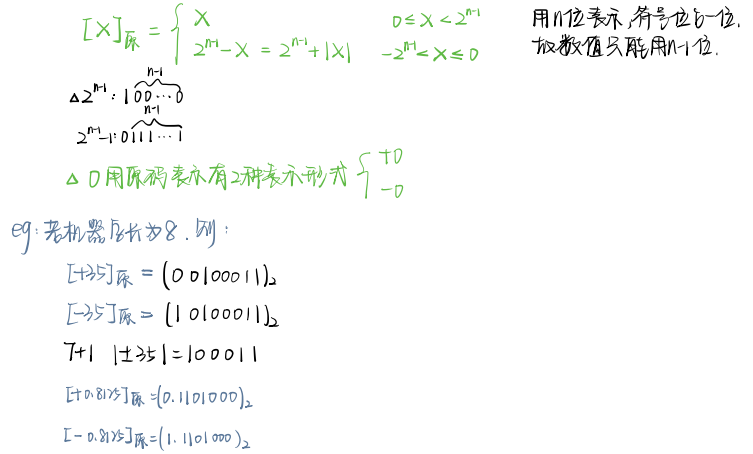 [X]原 = { X    0≤X<2ⁿ⁻¹
2ⁿ⁻¹-X = 2ⁿ⁻¹+|X|    -2ⁿ⁻¹<X≤0
用n位表示,符号位占一位,
故数值只能用n-1位.
n-1
△2ⁿ⁻¹: 100…0
n-1
2ⁿ⁻¹-1: 0111…1
△ 0用原码表示有2种表示形式 { +0
-0
eg: 若机器字长为8. 则:
[+35]原 = (00100011)₂
[-35]原 = (10100011)₂
7+1 |±35|=100011
[+0.8125]原=(0.1101000)₂
[-0.8125]原=(1.1101000)₂